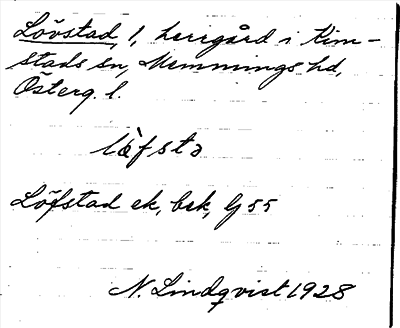 Lövstad, 1, herrgård i Kim-
stads sn, Memmings hd,
Österg. l.
lὲfsta
Löfstad ek, bsk, G 55
N. Lindqvist 1928